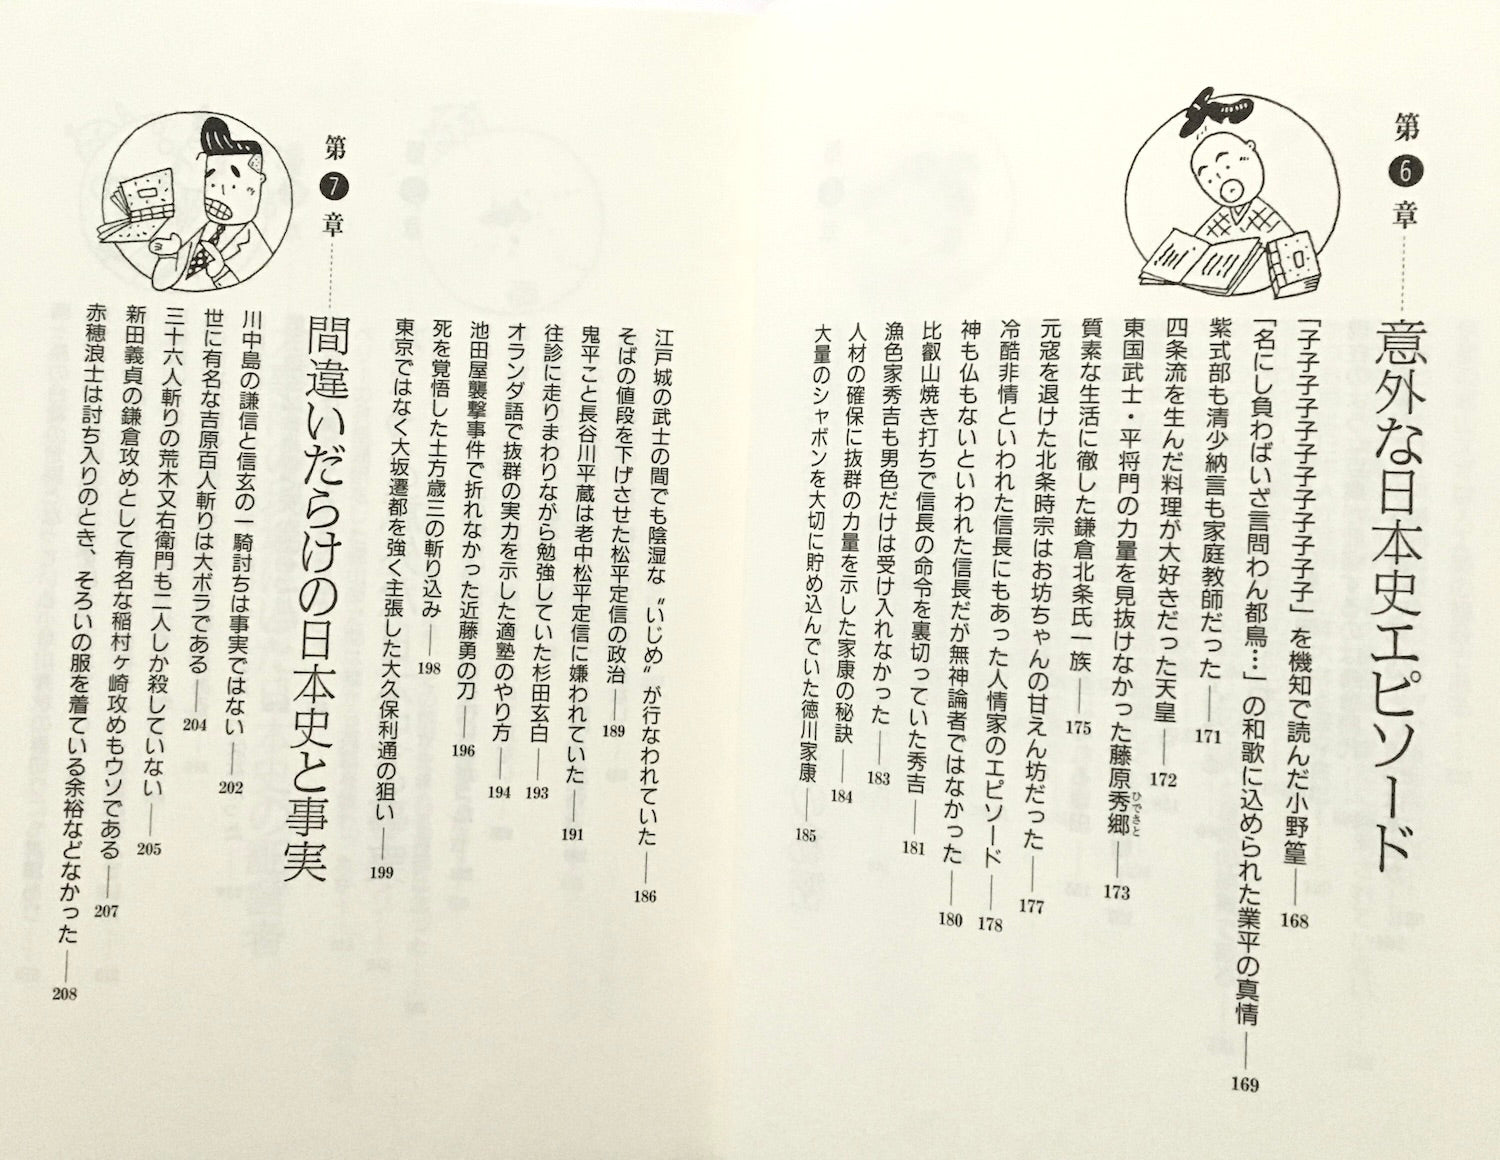 第6章 意外な日本史エピソード
「子子子子子子子子子子子子」を機知で読んだ小野篁 168
「名にし負わばいざ言問わん都鳥…」の和歌に込められた業平の真情 169
紫式部も清少納言も家庭教師だった 171
四条流を生んだ料理が大好きだった天皇 172
東国武士・平将門の力量を見抜けなかった藤原秀郷 173
ひでさと
質素な生活に徹した鎌倉北条氏一族 175
元寇を退けた北条時宗はお坊ちゃんの甘えん坊だった 177
冷酷非情といわれた信長にもあった人情家のエピソード 178
神も仏もないといわれた信長だが無神論者ではなかった 180
比叡山焼き打ちで信長の命令を裏切っていた秀吉 181
漁色家秀吉も男色だけは受け入れなかった 183
人材の確保に抜群の力量を示した家康の秘訣 184
大量のシャボンを大切に貯め込んでいた徳川家康 185
江戸城の武士の間でも陰湿な〝いじめ〟が行なわれていた 186
そばの値段を下げさせた松平定信の政治 189
鬼平こと長谷川平蔵は老中松平定信に嫌われていた 191
往診に走りまわりながら勉強していた杉田玄白 193
オランダ語で抜群の実力を示した適塾のやり方 194
池田屋襲撃事件で折れなかった近藤勇の刀 196
死を覚悟した土方歳三の斬り込み 198
東京ではなく大坂遷都を強く主張した大久保利通の狙い 199
第7章 間違いだらけの日本史と事実
川中島の謙信と信玄の一騎討ちは事実ではない 202
世に有名な吉原百人斬りは大ボラである 204
三十六人斬りの荒木又右衛門も二人しか殺していない 205
新田義貞の鎌倉攻めとして有名な稲村ヶ崎攻めもウソである 207
赤穂浪士は討ち入りのとき、そろいの服を着ている余裕などなかった 208